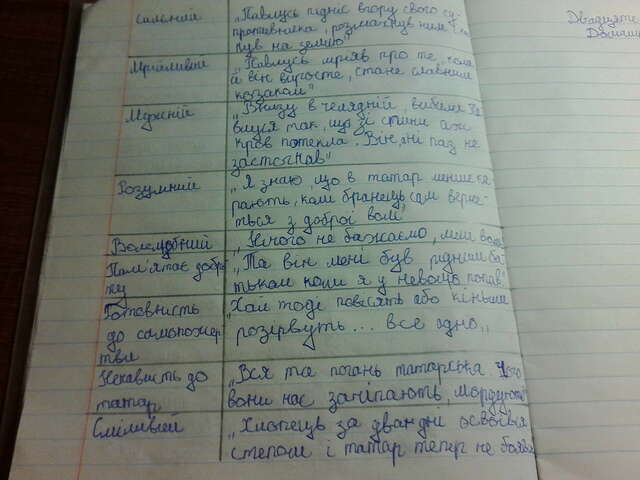 Двадцяте
Сильний „Павлусь підніс вгору свого су
противника, розмахнув ним і
нув на землю"
Мрійливий „Павлусь мріяв про те, коли
й він виросте, стане славним
козаком"
Мужній „Внизу в челядній, вибили
так, що зі спини аж
кров потекла. Він ні раз не
застогнав"
Розумний „Я знаю, що в татар менше ка
рають, коли бранець сам верне-
ться з доброї волі"
Волелюбний „Нічого не бажаємо, лиш волі
Пам'ятає добро „Та він мені був рідним ба
ту тьком коли я у неволю попав"
Готовність „Хай тоді повісять або кіньми
до самопожер розірвуть... все одно„
тви
Ненависть до „Вся та погань татарська. Чого
татар вони нас зачіпають, мордують
Сміливий „Хлопець за два дні освоївся
степом і татар тепер не бояв